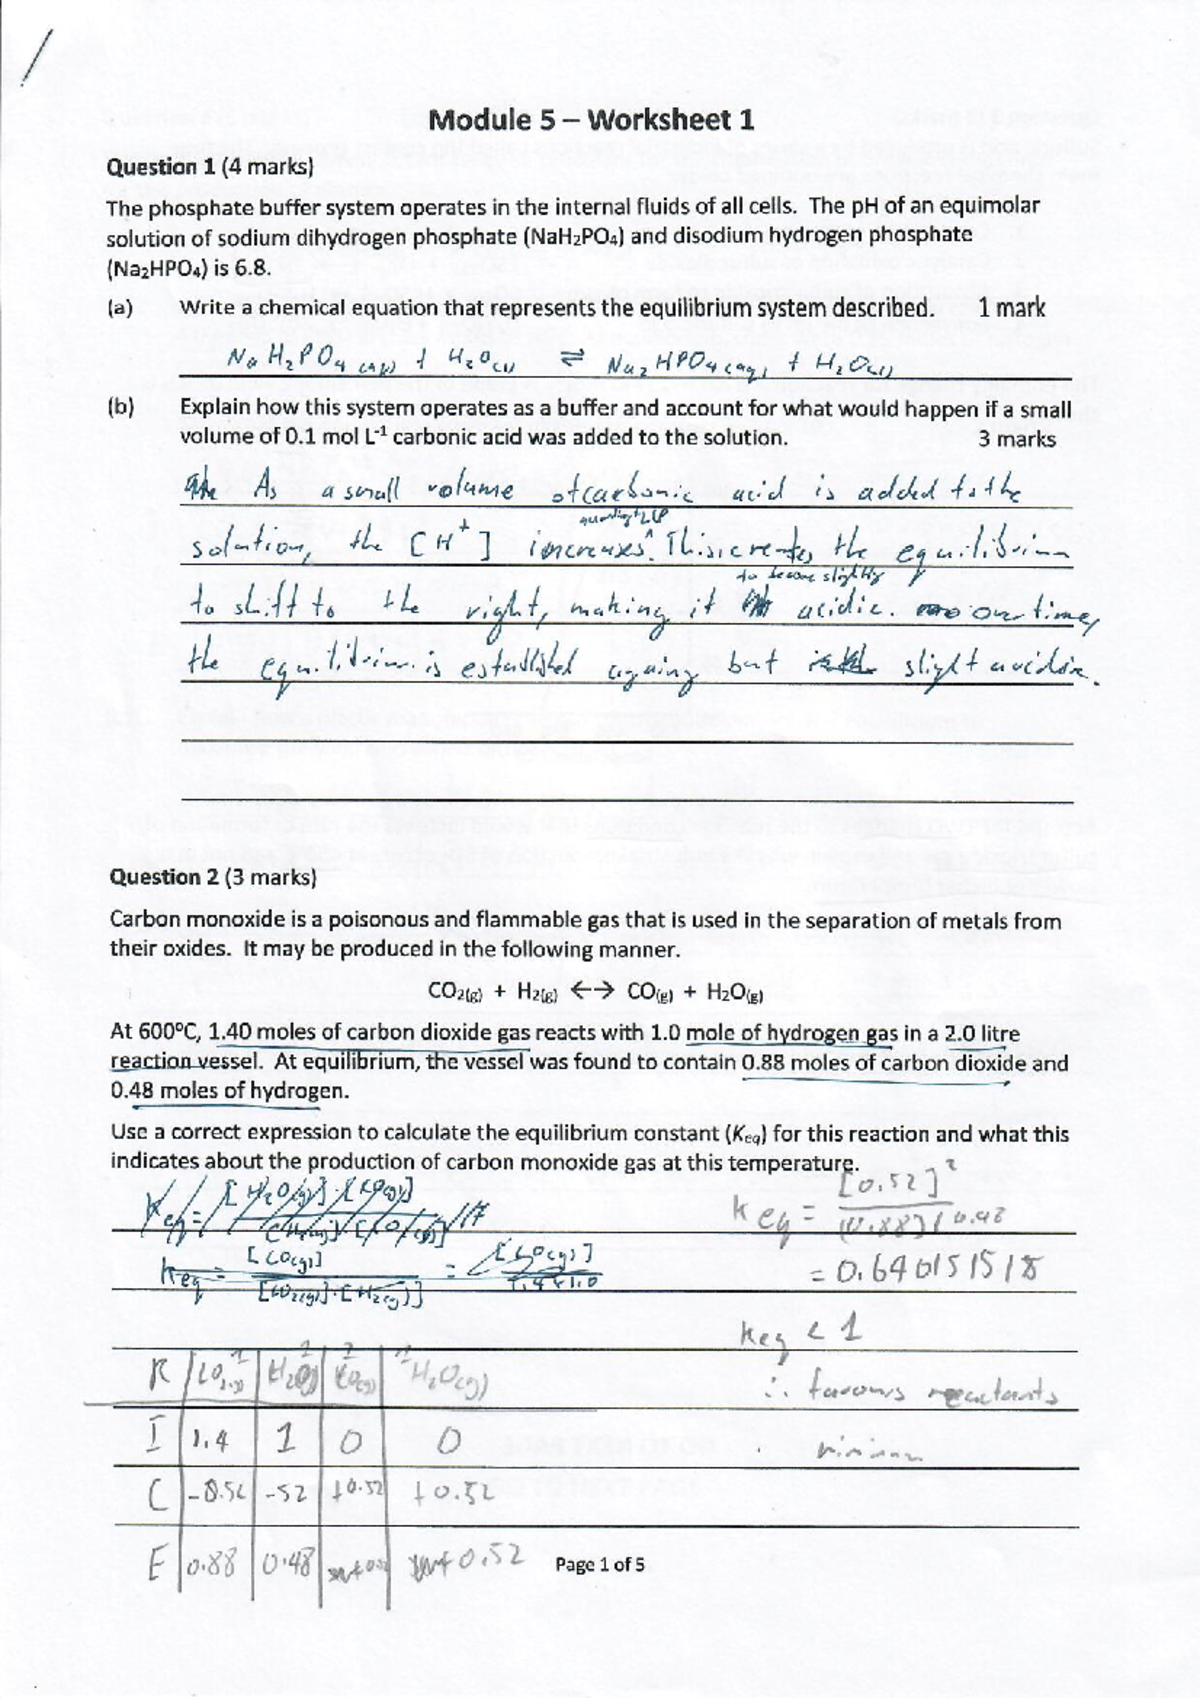 Module 5 – Worksheet 1
Question 1 (4 marks)
The phosphate buffer system operates in the internal fluids of all cells. The pH of an equimolar
solution of sodium dihydrogen phosphate (NaH₂PO₄) and disodium hydrogen phosphate
(Na₂HPO₄) is 6.8.
(a) Write a chemical equation that represents the equilibrium system described. 1 mark
NaH₂PO₄(aq) + H₂O(l) ⇌ Na₂HPO₄(aq) + H₂O(l)
(b) Explain how this system operates as a buffer and account for what would happen if a small
volume of 0.1 mol L⁻¹ carbonic acid was added to the solution. 3 marks
As a small volume of carbonic acid is added to the
solution, the [H⁺] increases. This creates the equilibrium
to become slightly
to shift to the right, making it acidic. over time,
the equilibrium is established againg but slight acidic.
Question 2 (3 marks)
Carbon monoxide is a poisonous and flammable gas that is used in the separation of metals from
their oxides. It may be produced in the following manner.
CO₂(g) + H₂(g) ←→ CO(g) + H₂O(g)
At 600°C, 1.40 moles of carbon dioxide gas reacts with 1.0 mole of hydrogen gas in a 2.0 litre
reaction vessel. At equilibrium, the vessel was found to contain 0.88 moles of carbon dioxide and
0.48 moles of hydrogen.
Use a correct expression to calculate the equilibrium constant (Keq) for this reaction and what this
indicates about the production of carbon monoxide gas at this temperature.
Keq = [H₂O(g)]·[CO(g)]
Keq = [CO(g)] / [CO₂(g)]·[H₂(g)] = [CO(g)] / 1.4 × 1.0
keq = [0.52]² / [0.88][0.48
= 0.640151518
keq < 1
∴ favours reactants
R CO₂(g) H₂(g) CO(g) H₂O(g)
I 1.4 1 0 0
C -0.52 -52 +0.52 +0.52
E 0.88 0.48 0.52
Page 1 of 5